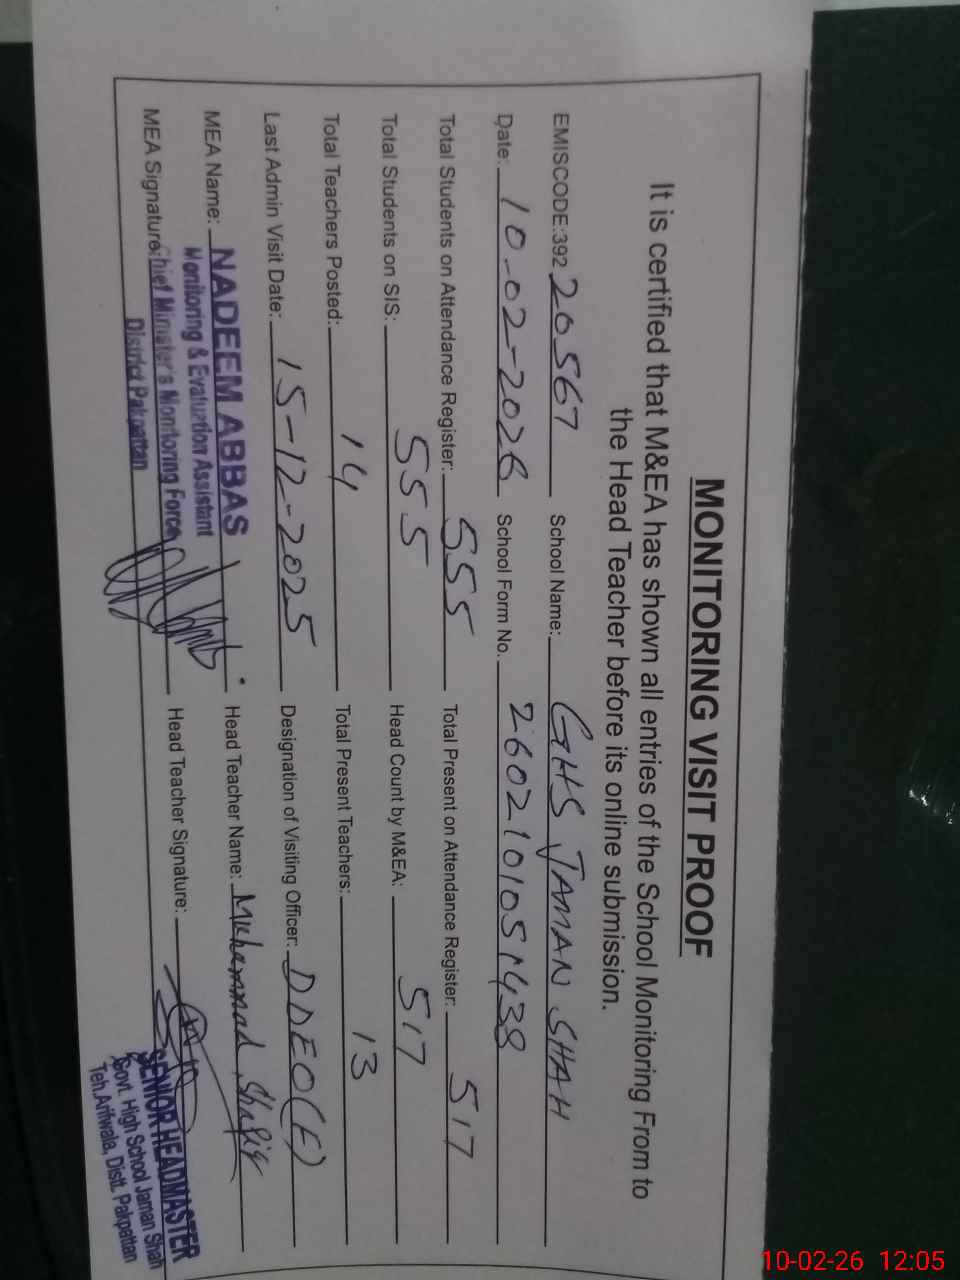 MONITORING VISIT PROOF
It is certified that M&EA has shown all entries of the School Monitoring From to
the Head Teacher before its online submission.
EMISCODE:392 20567 School Name: GHS JAMAN SHAH
Date: 10-02-2026 School Form No. 2602101051438
Total Students on Attendance Register: 555 Total Present on Attendance Register: 517
Total Students on SIS: 555 Head Count by M&EA: 517
Total Teachers Posted: 14 Total Present Teachers: 13
Last Admin Visit Date: 15-12-2025 Designation of Visiting Officer: DDEO(E)
MEA Name: NADEEM ABBAS Head Teacher Name: Muhammad Shafiq
Monitoring & Evaluation Assistant
MEA Signature: Chief Minister's Monitoring Force Head Teacher Signature:
District Pakpattan
SENIOR HEADMASTER
Govt. High School Jaman Shah
Teh. Arifwala, Distt. Pakpattan
10-02-26 12:05